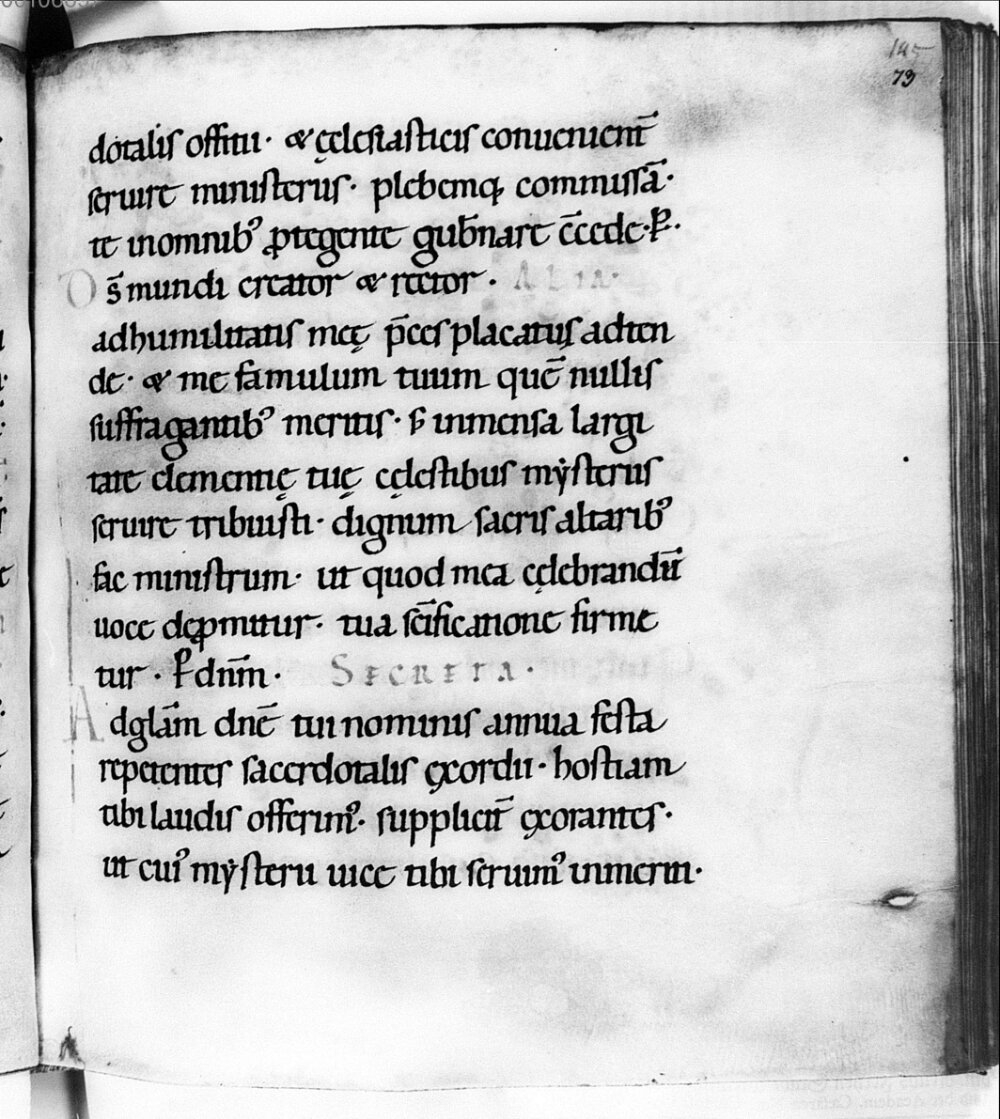 145
73
dotalis offitii · & ęcclesiasticis conuenient̄
seruire ministeriis · plebemq; commissā ·
te inomnib; ꝓtegente gub̄nare c̄cede · P̄ ·
Os̄ mundi creator & rector · ALIA ·
adhumilitatis meę p̄ces placatus adten
de · & me famulum tuum quē nullis
suffragantib; meritis · s; inmensa largi
tate clementię tuę cęlestibus mẏsteriis
seruire tribuisti · dignum sacris altarib;
fac ministrum · ut quod mea cęlebrandū
uoce deꝓmitur · tua sc̄ificatione firme
tur · P̄ dnm̄ · SECRETA ·
Adgłam dnē tui nominis annua festa
repetentes sacerdotalis exordii · hostiam
tibi laudis offerim; · supplicit̄ exorantes ·
ut cui; mẏsterii uice tibi seruim; inmeriti ·